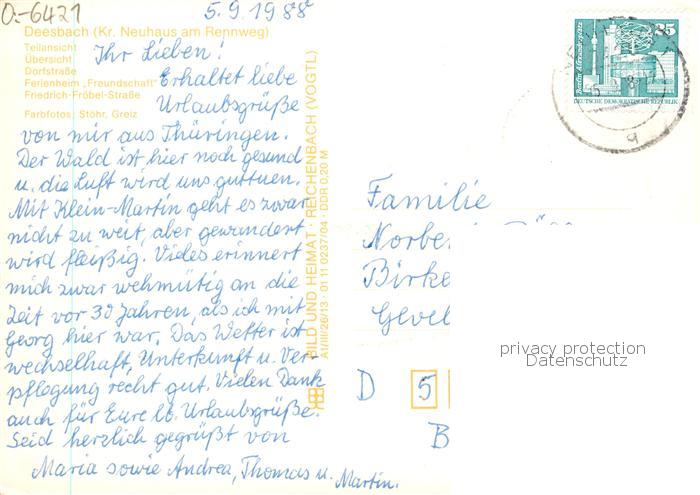 O.-6421
5.9.1988
Deesbach (Kr. Neuhaus am Rennweg)
Teilansicht
Übersicht
Dorfstraße
Ferienheim „Freundschaft"
Friedrich-Fröbel-Straße
Farbfotos: Stöhr, Greiz
Ihr Lieben!
Erhaltet liebe
Urlaubsgrüße
von mir aus Thüringen.
Der Wald ist hier noch gesund
u. die Luft wird uns guttuen.
Mit Klein-Martin geht es zwar
nicht zu weit, aber gewandert
wird fleißig. Vieles erinnert
mich zwar wehmütig an die
Zeit vor 30 Jahren, als ich mit
Georg hier war. Das Wetter ist
wechselhaft, Unterkunft u. Ver-
pflegung recht gut. Vielen Dank
auch für Eure lb. Urlaubsgrüße.
Seid herzlich gegrüßt von
Maria sowie Andrea, Thomas u. Martin.
BILD UND HEIMAT · REICHENBACH (VOGTL)
A1/III/26/13 · 01 11 0237/04 · DDR 0,20 M
25
Berlin, Alexanderplatz
DEUTSCHE DEMOKRATISCHE REPUBLIK
g
Familie
Norbe
Birke
Gevel
D 5
B
privacy protection
Datenschutz